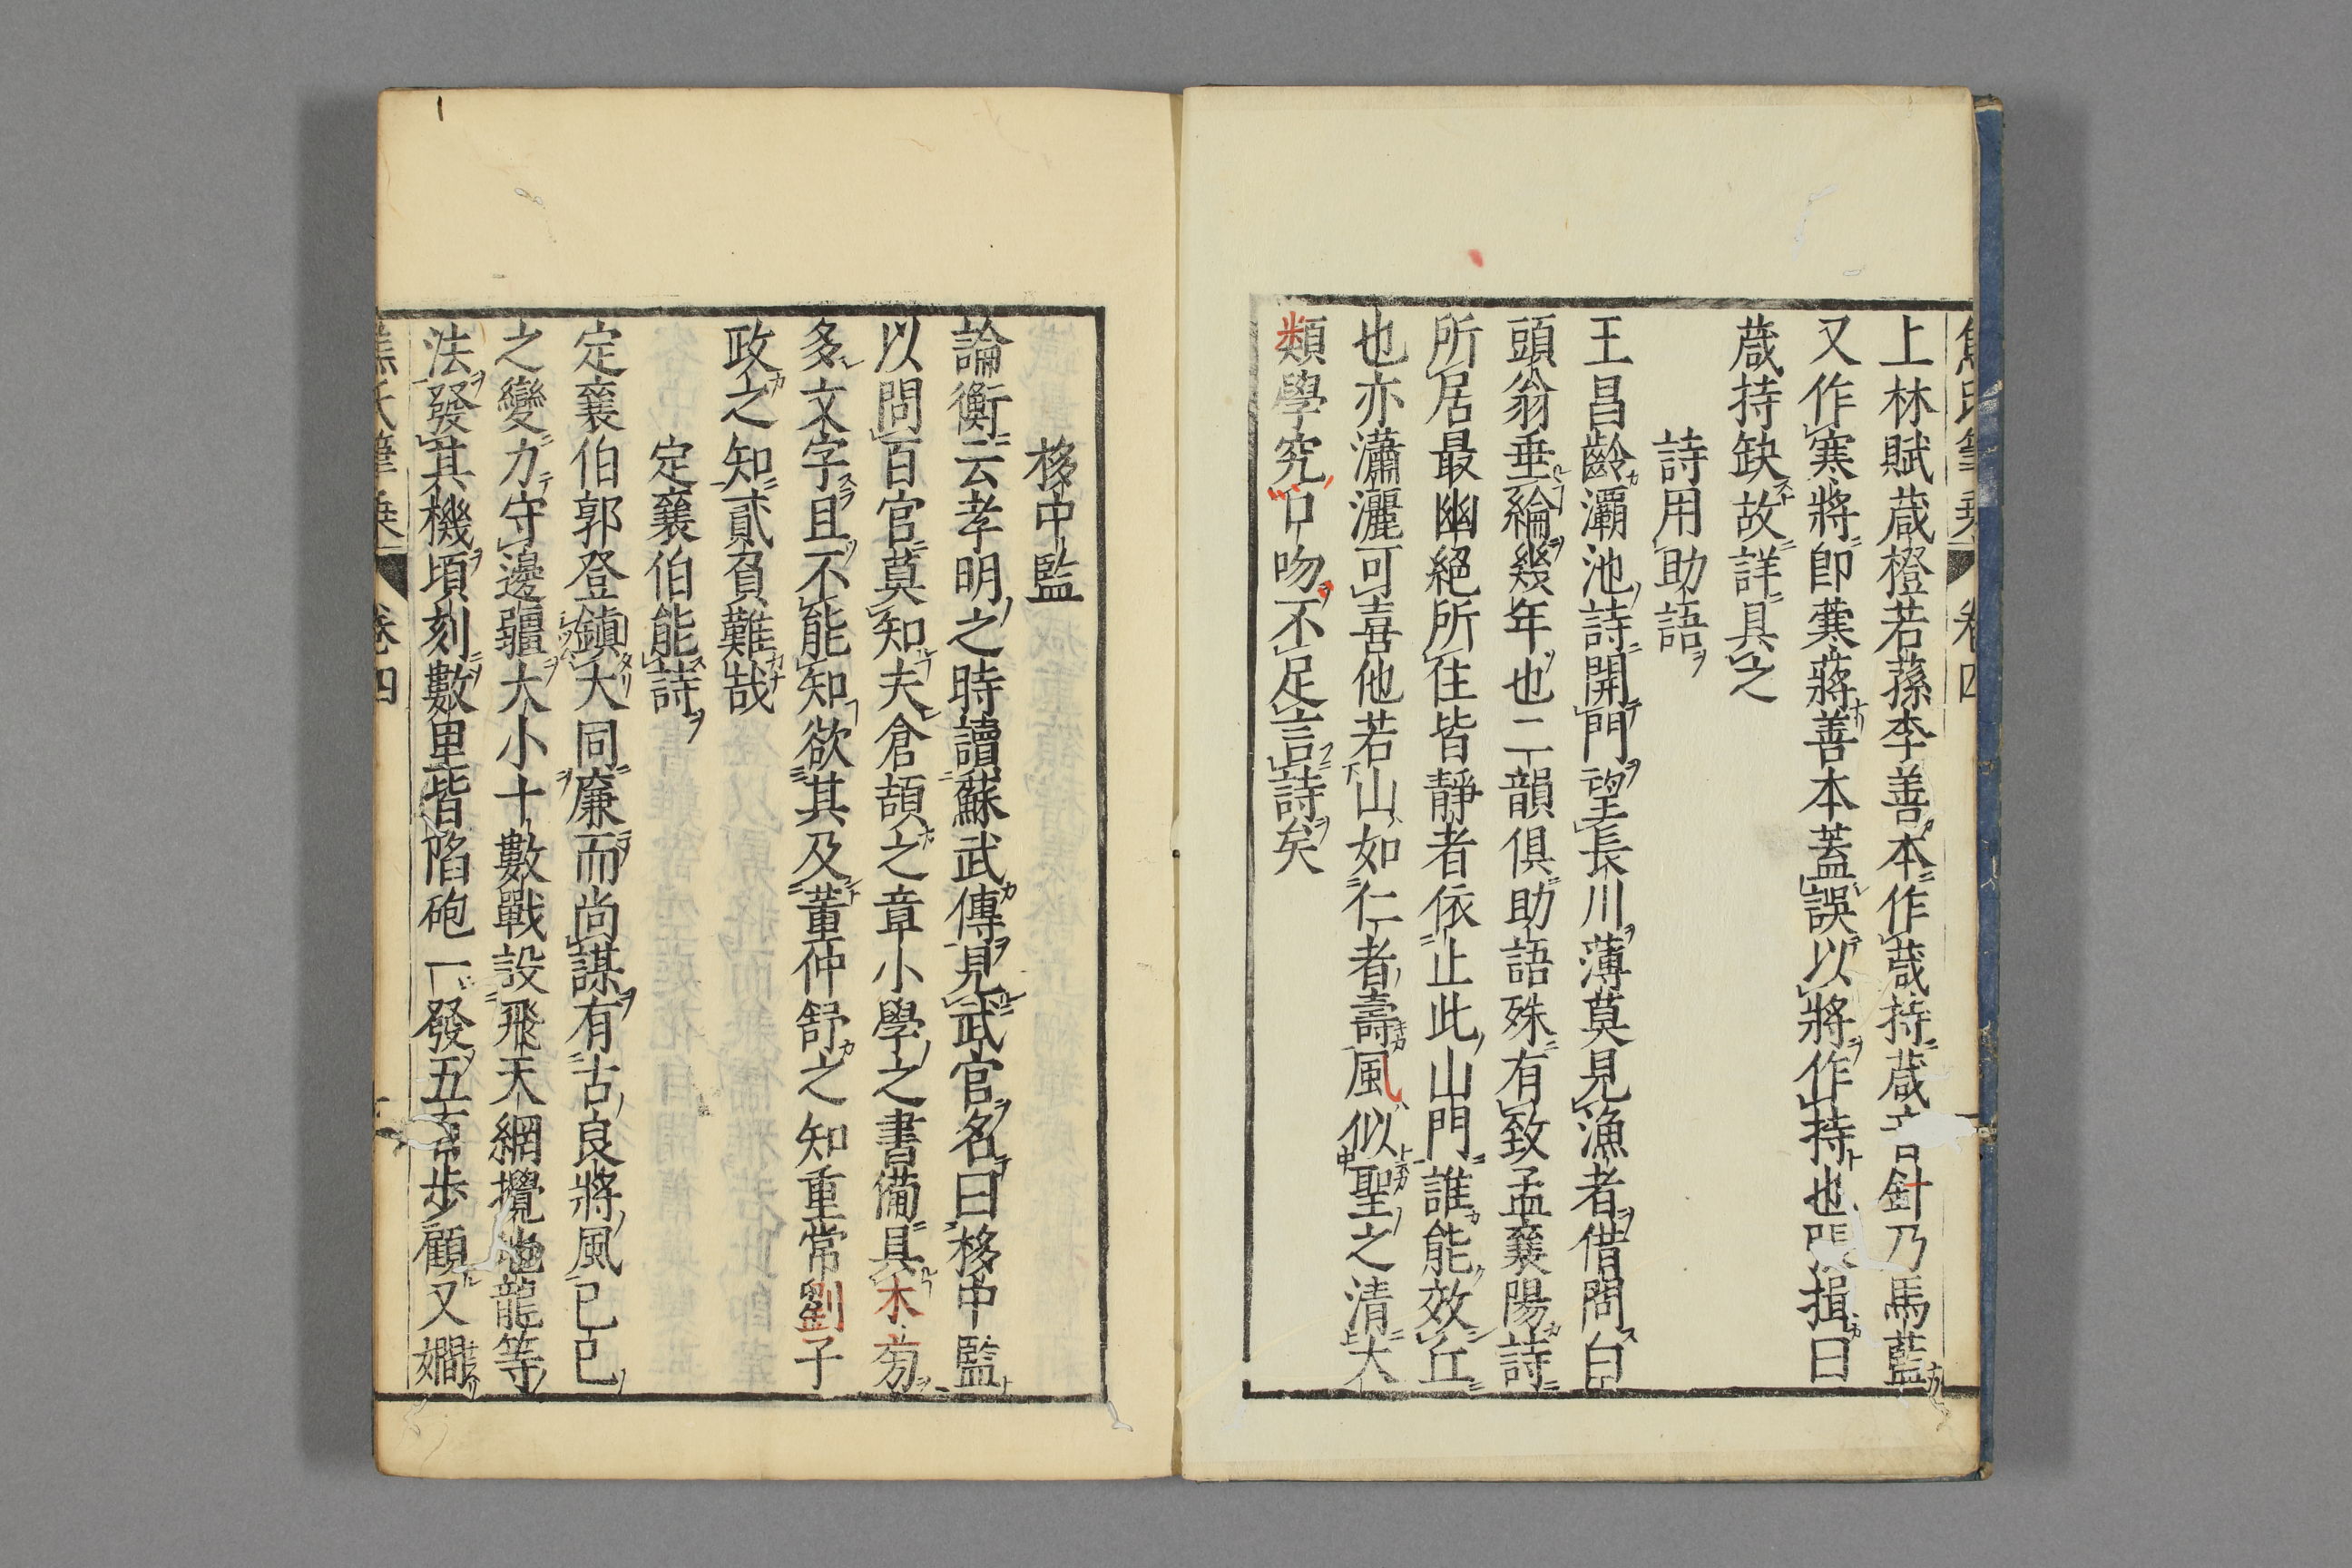 上林賦葴橙若蓀李善本作葴持葴音針乃馬藍
又作寒將卽葉蔣善本蓋誤以將作持也張揖曰
葴持缺故詳具之
詩用助語
王昌齡灞池詩開門望長川薄莫見漁者借問白
頭翁垂綸幾年也二韻俱助語殊有致孟襄陽詩
所居最幽絕所住皆靜者依止此山門誰能效丘
也亦瀟灑可喜他若山如仁者壽風似聖之清大
類學究口吻不足言詩矣
移中監
論衡云孝明之時讀蘇武傳見武官名曰移中監
以問百官莫知夫倉頡之章小學之書備具
多文字且不能知欲其及董仲舒之知重常劉子
政之知貳負難哉
定襄伯能詩
定襄伯郭登鎮大同廉而尚謀有古良將風已巳
之變力守邊疆大小十數戰設飛天網攪地龍等
法發其機頃刻數里皆陷砲一發五百步顧又嫺
焦氏筆乘 卷四